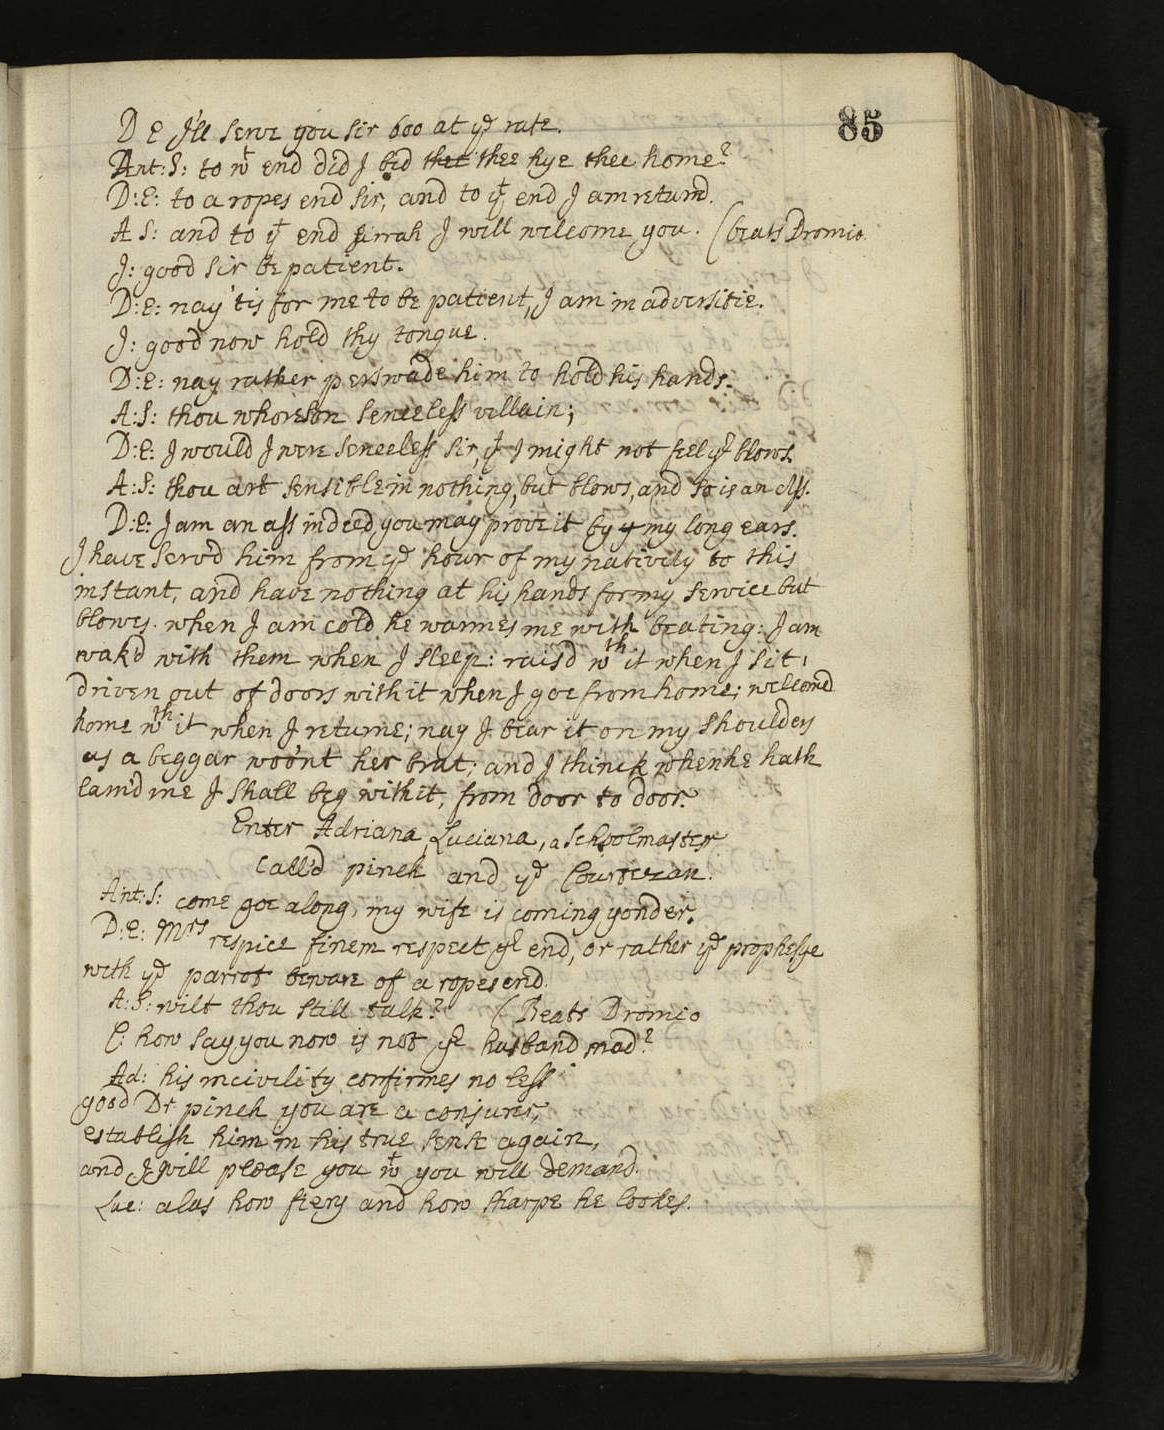 85
D E I'll serve you sir 600 at yᵉ rate.
Ant: S: to wᵗ end did I bid thet thee hye thee home?
D: E: to a ropes end sir, and to yᵗ end I am returnd.
A S: and to yᵗ end sirrah I will welcome you. (beats Dromio
J: good sir be patient.
D: E: nay 'tis for me to be patient, I am in adversitie.
J: good now hold thy tongue.
D: E: nay rather perswade him to hold his hands.
A: S: thou whoreson senceless villain;
D: E: I would I were senceless sir, yᵗ I might not feel yʳ blows.
A: S: thou art sensible in nothing, but blows, and so is an ass.
D: E: I am an ass indeed you may prove it by y my long ears.
I have serv'd him from yᵉ hour of my nativity to this
instant, and have nothing at his hands for my service but
blowes. when I am cold he warmes me with beating: I am
wak'd with them when I sleep: rais'd wᵗʰ it when I sit:
driven out of doors with it when I goe from home; welcomd
home wᵗʰ it when I returne; nay I bear it on my shoulders
as a beggar woo'nt her brat; and I thinck when he hath
lam'd me I shall beg with it, from door to door.
Enter Adriana, Luciana, a Schoolmaster
call'd pinch and yᵉ Courtezan.
Ant: S: come goe along, my wife is coming yonder.
D: E: Mʳˢ respice finem respect yʳ end, or rather yᵉ prophesye
with yᵉ parrot beware of a ropes end.
A: S: wilt thou still talk? (Beats Dromio
C: how say you now is not yʳ husband mad?
Ad: his incivility confirmes no less
good Dʳ pinch you are a conjurer,
establish him in his true sense again,
and I will please you wᵗ you will demand.
Luc: alas how fiery and how sharpe he lookes.